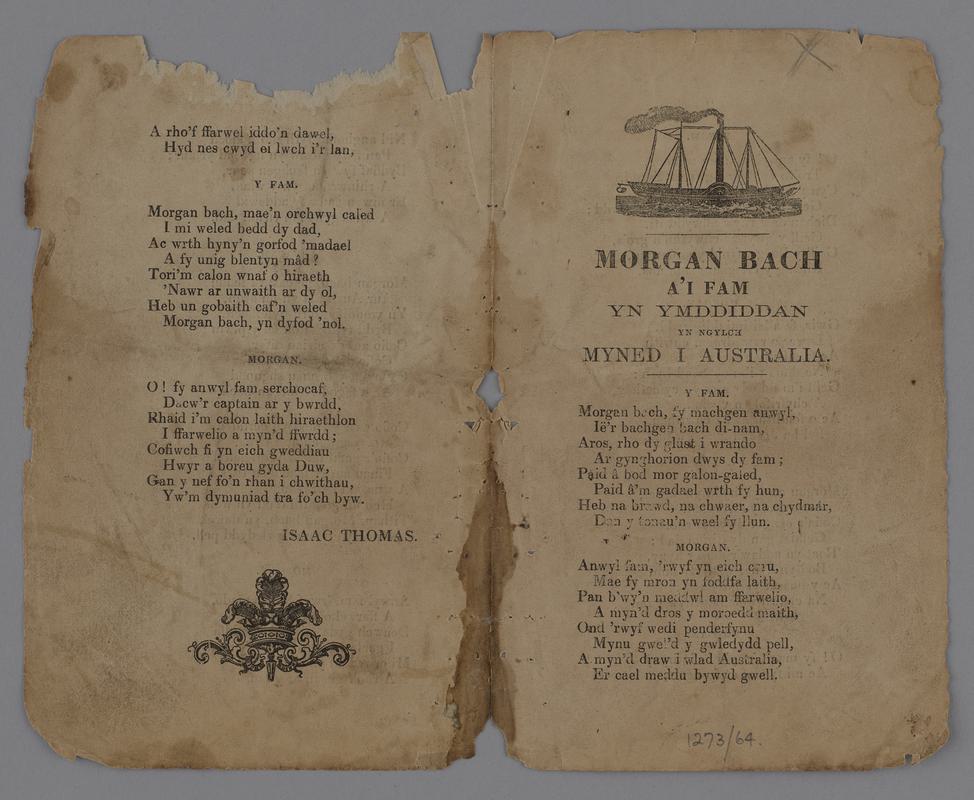 A rho'f ffarwel iddo'n dawel,
Hyd nes cwyd ei lwch i'r lan,
Y FAM.
Morgan bach, mae'n orchwyl caled
I mi weled bedd dy dad,
Ac wrth hyny'n gorfod 'madael
A fy unig blentyn mâd?
Tori'm calon wnaf o hiraeth
'Nawr ar unwaith ar dy ol,
Heb un gobaith caf'n weled
Morgan bach, yn dyfod 'nol.
MORGAN.
O! fy anwyl fam serchocaf,
Dacw'r captain ar y bwrdd,
Rhaid i'm calon laith hiraethlon
I ffarwelio a myn'd ffwrdd;
Cofiwch fi yn eich gweddiau
Hwyr a boreu gyda Duw,
Gan y nef fo'n rhan i chwithau,
Yw'm dymuniad tra fo'ch byw.
ISAAC THOMAS.
MORGAN BACH
A'I FAM
YN YMDDIDDAN
YN NGYLCH
MYNED I AUSTRALIA.
Y FAM.
Morgan bach, fy machgen anwyl,
Ië'r bachgen bach di-nam,
Aros, rho dy glust i wrando
Ar gynghorion dwys dy fam;
Paid â bod mor galon-galed,
Paid â'm gadael wrth fy hun,
Heb na brawd, na chwaer, na chydmar,
Dan y tonau'n wael fy llun.
MORGAN.
Anwyl fam, 'rwyf yn eich caru,
Mae fy mron yn foddfa laith,
Pan b'wy'n meddwl am ffarwelio,
A myn'd dros y moroedd maith,
Ond 'rwyf wedi penderfynu
Mynu gwel'd y gwledydd pell,
A myn'd draw i wlad Australia,
Er cael meddu bywyd gwell.
1273/64.